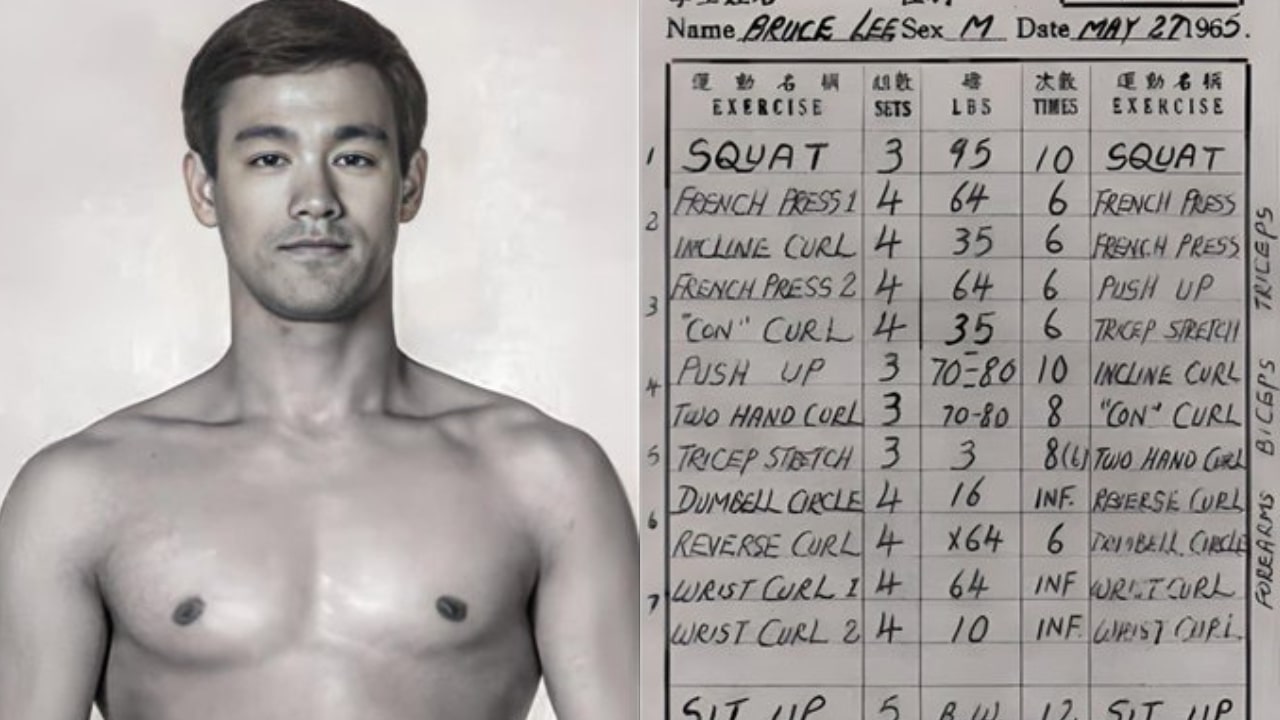 Name BRUCE LEE Sex M Date MAY 27 1965.
運動名稱 組數 磅 次數 運動名稱
EXERCISE SETS LBS TIMES EXERCISE
1 SQUAT 3 95 10 SQUAT
FRENCH PRESS 1 4 64 6 FRENCH PRESS
2
INCLINE CURL 4 35 6 FRENCH PRESS
FRENCH PRESS 2 4 64 6 PUSH UP
3
"CON" CURL 4 35 6 TRICEP STRETCH
PUSH UP 3 70-80 10 INCLINE CURL
4
TWO HAND CURL 3 70-80 8 "CON" CURL
5 TRICEP STRETCH 3 3 8(6) TWO HAND CURL
DUMBELL CIRCLE 4 16 INF. REVERSE CURL
6
REVERSE CURL 4 X64 6 DUMBELL CIRCLE
WRIST CURL 1 4 64 INF WRIST CURL
7
WRIST CURL 2 4 10 INF. WRIST CURL
SIT UP 5 B.W. 12 SIT UP
TRICEPS
BICEPS
FOREARMS